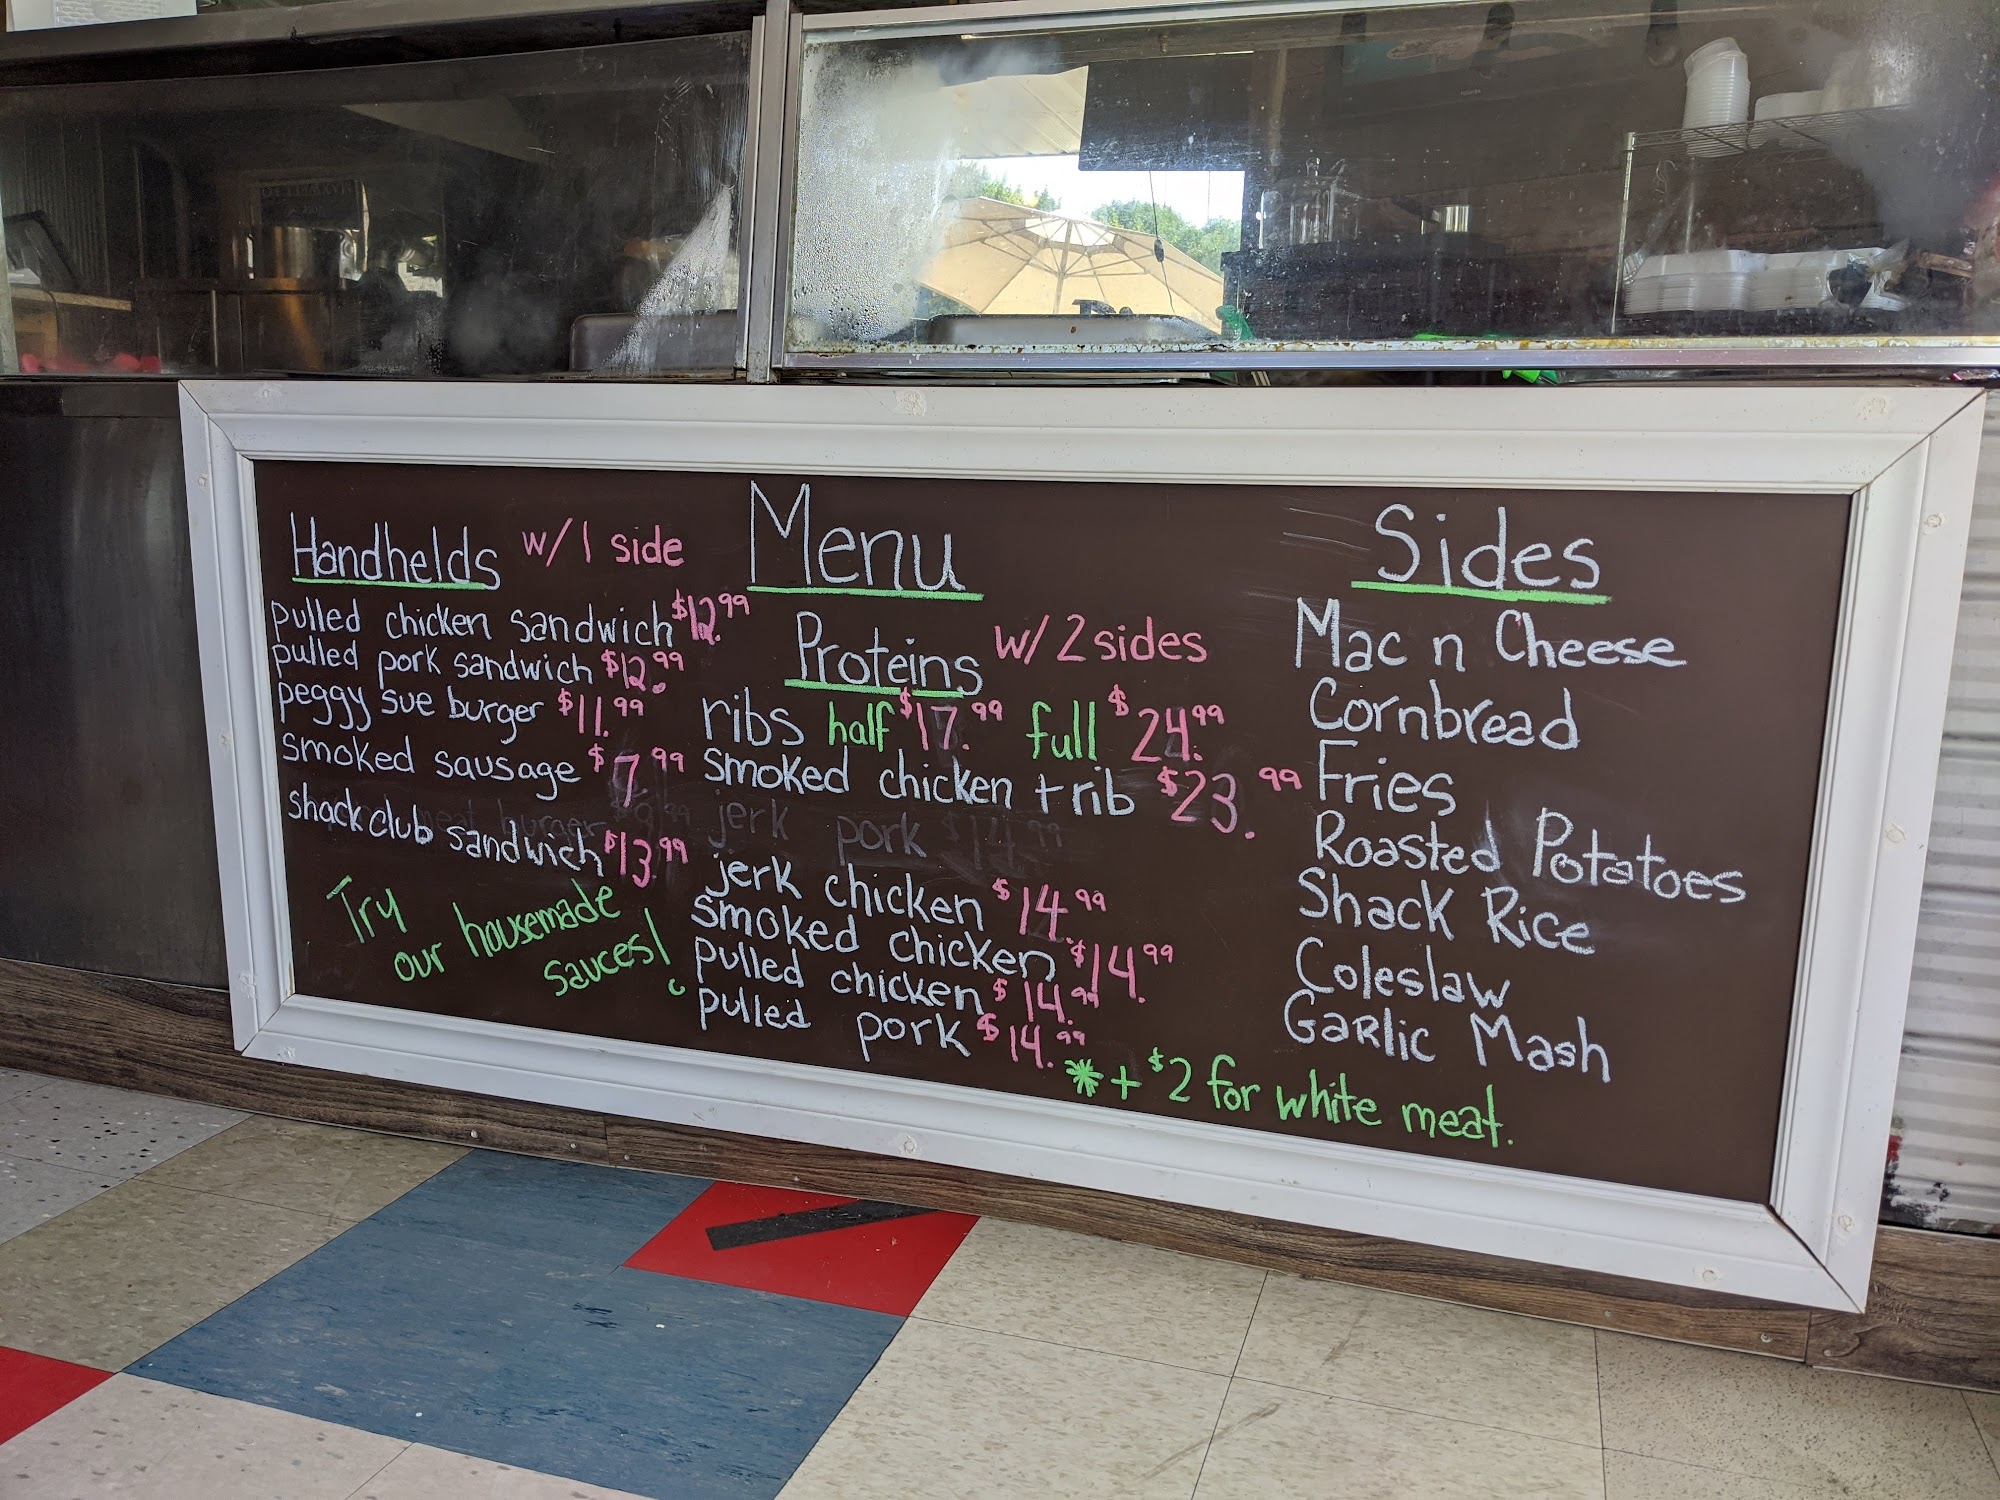 Menu
Handhelds w/ 1 side
pulled chicken sandwich $12.99
pulled pork sandwich $12.99
peggy sue burger $11.99
smoked sausage $7.99
shack club sandwich $13.99
Try
our housemade
sauces!
Proteins w/ 2 sides
ribs half $17.99 full $24.99
smoked chicken + rib $23.99
jerk pork $14.99
jerk chicken $14.99
smoked chicken $14.99
pulled chicken $14.99
pulled pork $14.99
*+ $2 for white meat.
Sides
Mac n Cheese
Cornbread
Fries
Roasted Potatoes
Shack Rice
Coleslaw
Garlic Mash